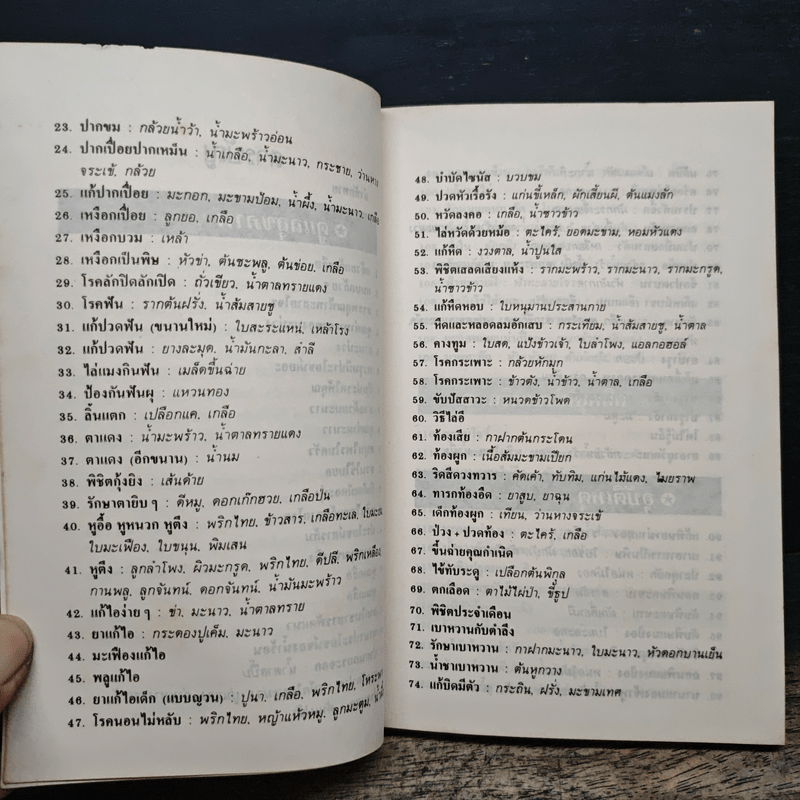 23. ปากขม : กล้วยน้ำว้า, น้ำมะพร้าวอ่อน
24. ปากเปื่อยปากเหม็น : น้ำเกลือ, น้ำมะนาว, กระชาย, ว่านหาง
จระเข้, กล้วย
25. แก้ปากเปื่อย : มะกอก, มะขามป้อม, น้ำผึ้ง, น้ำมะนาว, เกลือ
26. เหงือกเปื่อย : ลูกยอ, เกลือ
27. เหงือกบวม : เหล้า
28. เหงือกเป็นพิษ : หัวข่า, ต้นชะพลู, ต้นข่อย, เกลือ
29. โรคลักปิดลักเปิด : ถั่วเขียว, น้ำตาลทรายแดง
30. โรคฟัน : รากต้นฝรั่ง, น้ำส้มสายชู
31. แก้ปวดฟัน (ขนานใหม่) : ใบสะระแหน่, เหล้าโรง
32. แก้ปวดฟัน : ยางละมุด, น้ำมันกะลา, สำลี
33. ไล่แมงกินฟัน : เมล็ดขึ้นฉ่าย
34. ป้องกันฟันผุ : แหวนทอง
35. ลิ้นแตก : เปลือกแค, เกลือ
36. ตาแดง : น้ำมะพร้าว, น้ำตาลทรายแดง
37. ตาแดง (อีกขนาน) : น้ำนม
38. พิชิตกุ้งยิง : เส้นด้าย
39. รักษาตายิบ ๆ : ดีหมู, ดอกเก๊กฮวย, เกลือป่น
40. หูอื้อ หูหนวก หูตึง : พริกไทย, ข้าวสาร, เกลือทะเล,
ใบมะเฟือง, ใบขนุน, พิมเสน
41. หูตึง : ลูกลำโพง, ผิวมะกรูด, พริกไทย, ดีปลี, พริกเหลือง
กานพลู, ลูกจันทน์, ดอกจันทน์, น้ำมันมะพร้าว
42. แก้ไอง่าย ๆ : ข่า, มะนาว, น้ำตาลทราย
43. ยาแก้ไอ : กระดองปูเค็ม, มะนาว
44. มะเฟืองแก้ไอ
45. พลูแก้ไอ
46. ยาแก้ไอเด็ก (แบบญวน) : ปูนา, เกลือ, พริกไทย, โหระพา
47. โรคนอนไม่หลับ : พริกไทย, หญ้าแห้วหมู, ลูกมะตูม,
48. บำบัดไซนัส : บวบขม
49. ปวดหัวเรื้อรัง : แก่นขี้เหล็ก, ผักเสี้ยนผี, ต้นแมงลัก
50. หวัดลงคอ : เกลือ, น้ำซาวข้าว
51. ไล่หวัดด้วยหม้อ : ตะไคร้, ยอดมะขาม, หอมหัวแดง
52. แก้หืด : งวงตาล, น้ำปูนใส
53. พิชิตเสลดเสียงแห้ง : รากมะพร้าว, รากมะนาว, รากมะกรูด,
น้ำซาวข้าว
54. แก้หืดหอบ : ใบหนุมานประสานกาย
55. หืดและหลอดลมอักเสบ : กระเทียม, น้ำส้มสายชู, น้ำตาล
56. คางทูม : ใบสด, แป้งข้าวเจ้า, ใบลำโพง, แอลกอฮอล์
57. โรคกระเพาะ : กล้วยหักมุก
58. โรคกระเพาะ : ข้าวตัง, น้ำข้าว, น้ำตาล, เกลือ
59. ขับปัสสาวะ : หนวดข้าวโพด
60. วิธีไล่อึ
61. ท้องเสีย : กาฝากต้นกระโดน
62. ท้องผูก : เนื้อส้มมะขามเปียก
63. ริดสีดวงทวาร : คัดเค้า, ทับทิม, แก่นไม้แดง, ไมยราพ
64. ทารกท้องอืด : ยาสูบ, ยาฉุน
65. เด็กท้องผูก : เทียน, ว่านหางจระเข้
66. ป่วง + ปวดท้อง : ตะไคร้, เกลือ
67. ขึ้นฉ่ายคุณกำเนิด
68. ไข้ทับระดู : เปลือกต้นพิกุล
69. ตกเลือด : ตาไม้ไผ่ป่า, ขี้ธูป
70. พิชิตประจำเดือน
71. เบาหวานกับตำลึง
72. รักษาเบาหวาน : กาฝากมะนาว, ใบมะนาว, หัวดอกบานเย็น
73. น้ำชาเบาหวาน : ต้นหูกวาง
74. แก้บิดมีตัว : กระถิน, ฝรั่ง, มะขามเทศ